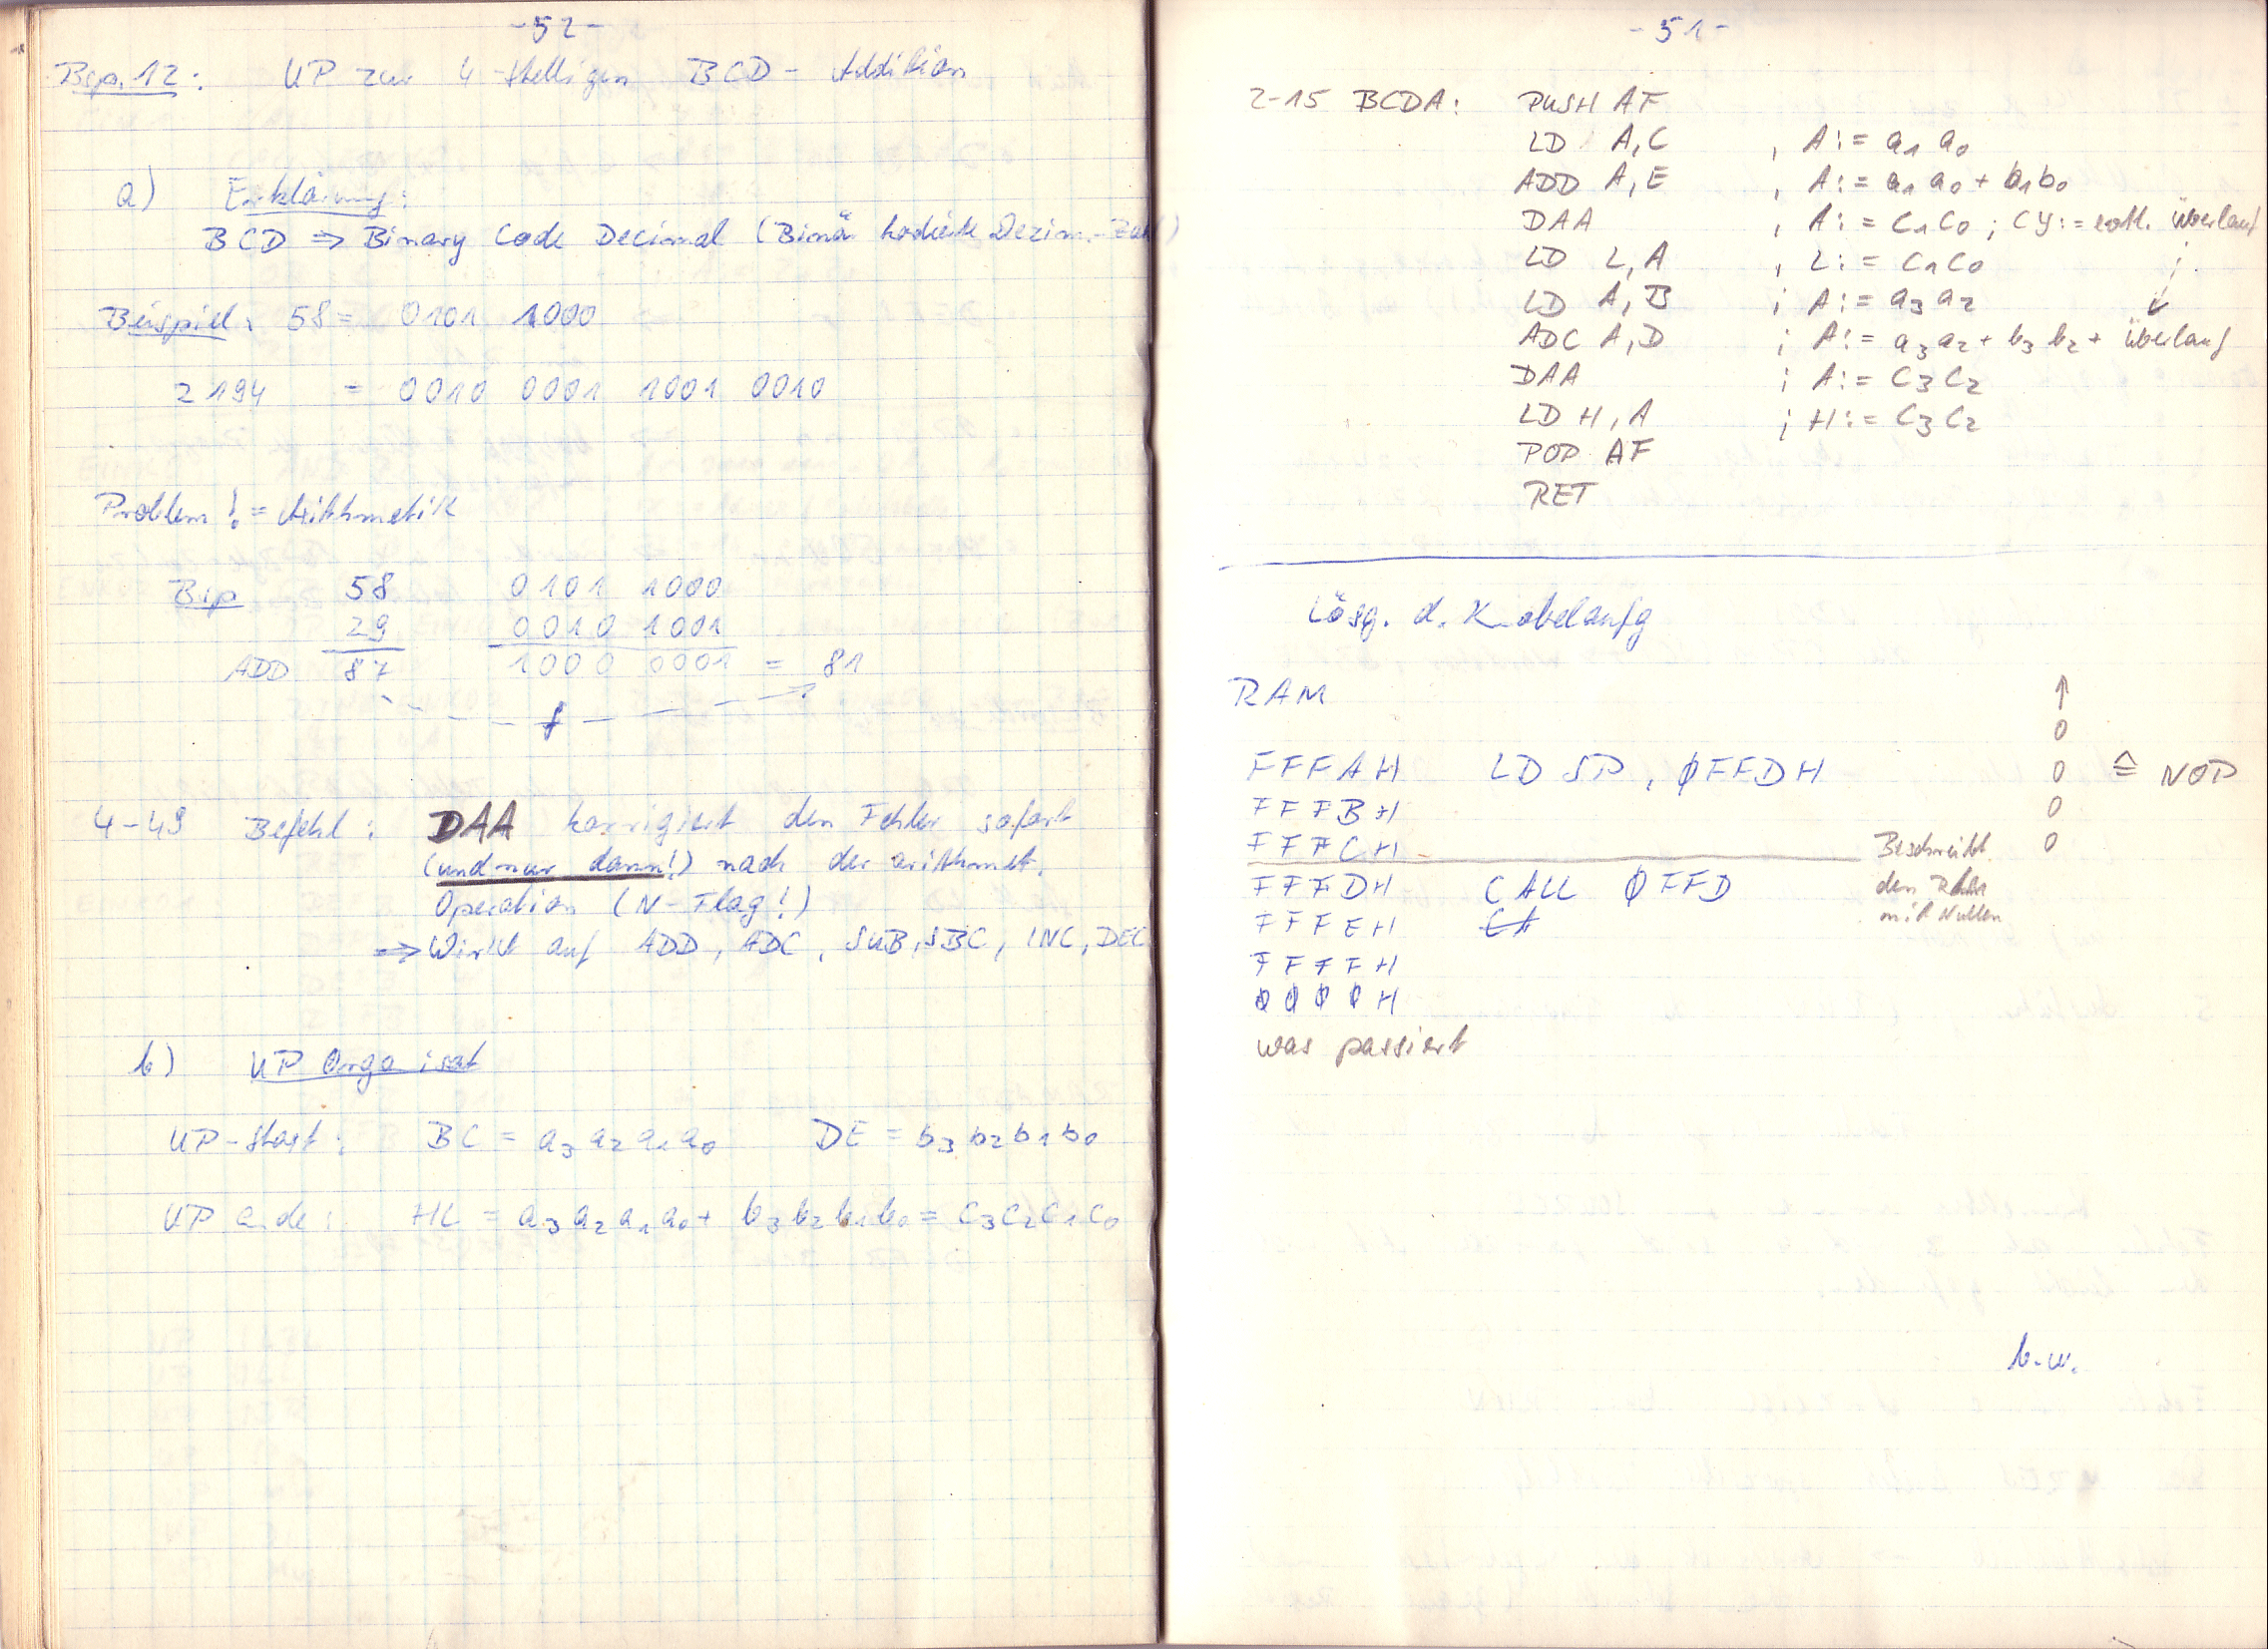 -52-
Bsp. 12: UP zur 4-stelligen BCD-Addition
a) Erklärung:
BCD ⇒ Binary Code Decimal (Binär kodierte Dezim.-Zahl)
Beispiel: 58 = 0101 1000
2194 = 0010 0001 1001 0010
Problem! = Arithmetik
Bsp 58 0101 1000
29 0010 1001
ADD 87 1000 0001 = 81
4-49 Befehl: DAA korrigiert den Fehler sofort
(und nur dann!) nach der arithmet.
Operation (N-Flag!)
⇒ Wirkt auf ADD, ADC, SUB, SBC, INC, DEC
b) UP Organisat
UP-Start: BC = a3 a2 a1 a0 DE = b3 b2 b1 b0
UP Ende: HL = a3 a2 a1 a0 + b3 b2 b1 b0 = c3 c2 c1 c0
-51-
2-15 BCDA: PUSH AF
LD A,C ; A:= a1 a0
ADD A,E ; A:= a1 a0 + b1 b0
DAA ; A:= C1 C0 ; CY:= evtl. überlauf
LD L,A ; L:= C1 C0
LD A,B ; A:= a3 a2
ADC A,D ; A:= a3 a2 + b3 b2 + überlauf
DAA ; A:= C3 C2
LD H,A ; H:= C3 C2
POP AF
RET
Lösg. d. Knobelaufg
RAM ↑
0
FFFAH LD SP, ØFFDH 0 ≙ NOP
FFFBH 0
FFFCH Beschreibt 0
FFFDH CALL ØFFD den RAM
FFFEH CA mit Nullen
FFFFH
ØØØØH
was passiert
b.w.